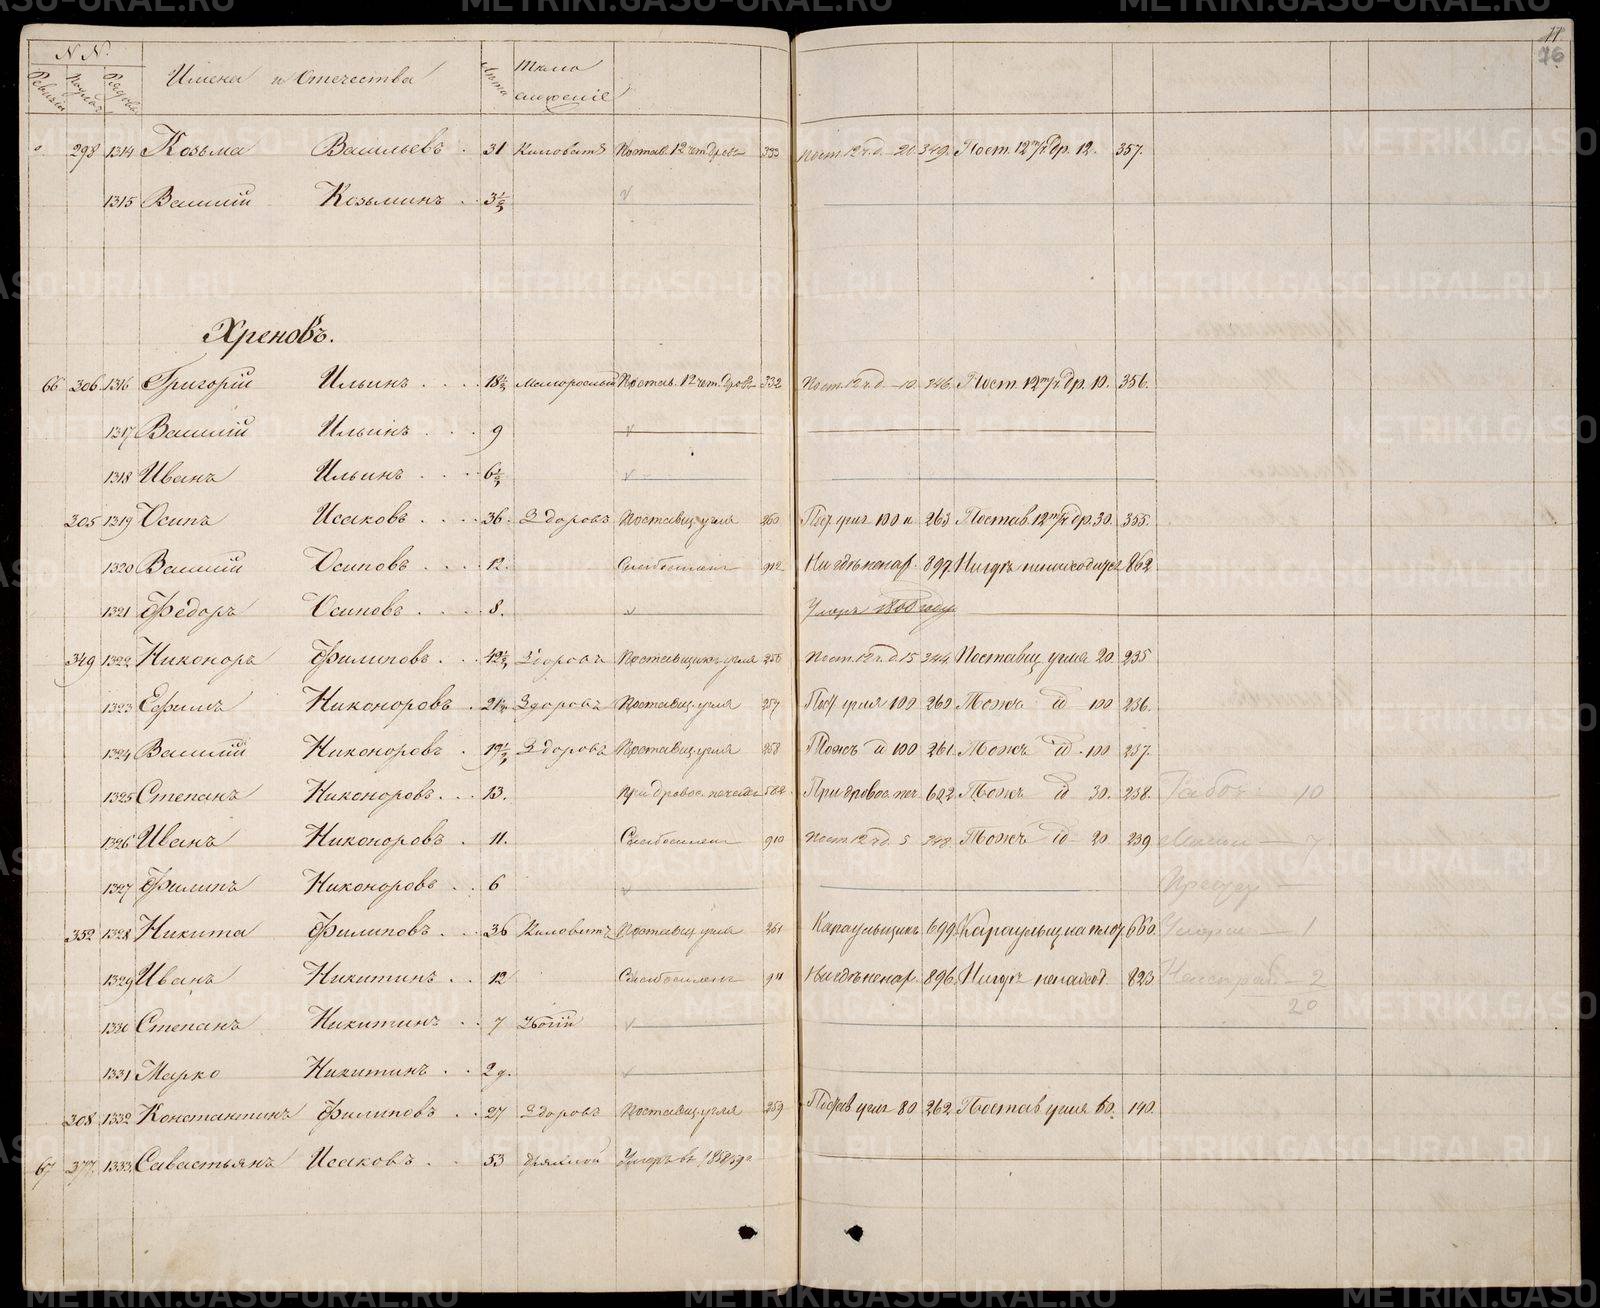 11
76
N N.
Ревизіи Подвор. Рядовы Имена и Отчества Лѣта Тѣло сложеніе
298 1314 Козьма Васильевъ 31 Хиловатъ Постав. 12 чет. дровъ 333 Пост. 12 ч. д. 20. 349. Пост. 12 м/ч др. 12. 357.
1315 Василій Козьминъ 3½
Хреновъ.
66 306. 1316 Григорій Ильинъ 18½ Малорослый Постав. 12 чет. дровъ 332 Пост. 12 ч. д. 10. 346. Пост. 12 м/ч др. 10. 356.
1317 Василій Ильинъ 9
1318 Иванъ Ильинъ 6½
305 1319 Осипъ Исаковъ 36. Здоровъ Поставщ. угля 260 Пост. угля 100 к. 263 Постав. 12 м/ч др. 30. 355.
1320 Василій Осиповъ 12. Слабосиленъ 912 Нигдѣ не нар. 897. Нигдѣ не находится 862
1321 Федоръ Осиповъ 8. Умеръ году
349 1322 Никоноръ Филиповъ 42½ Здоровъ Поставщикъ угля 256 Пост. 12 ч. д. 15 344 Поставщ. угля 20 235
1323 Ефимъ Никоноровъ 21½ Здоровъ Поставщ. угля 257 Пост. угля 100 260 Тожъ id 100 236.
1324 Василій Никоноровъ 19½ Здоровъ Поставщ. угля 258 Тожъ id 100 261 Тожъ id 100 237.
1325 Степанъ Никоноровъ 13. При дровос. печахъ 562 При дровос. печ. 602 Тожъ id 30. 238. Работ 10
1326 Иванъ Никоноровъ 11. Слабосиленъ 910 Пост. 12 ч. д. 5 348. Тожъ id 20 239 7
1327 Филипъ Никоноровъ 6
352 1328 Никита Филиповъ 36 Хиловатъ Поставщ. угля 261 Караульщикъ 699. Караульщ. на 660. Умерш 1
1329 Иванъ Никитинъ 12 Слабосиленъ 911 Нигдѣ не нар. 896. Нигдѣ не наход. 823 2
20
1330 Степанъ Никитинъ 7 Убогій
1331 Марко Никитинъ 2 д.
308 1332 Константинъ Филиповъ 27 Здоровъ Поставщ. угля 259 Постав. угля 80 262. Постав. угля 60. 140.
67 377. 1333 Савастьянъ Исаковъ 53 Дряхлой Умеръ въ 1858 г.
METRIKI.GASO-URAL.RU